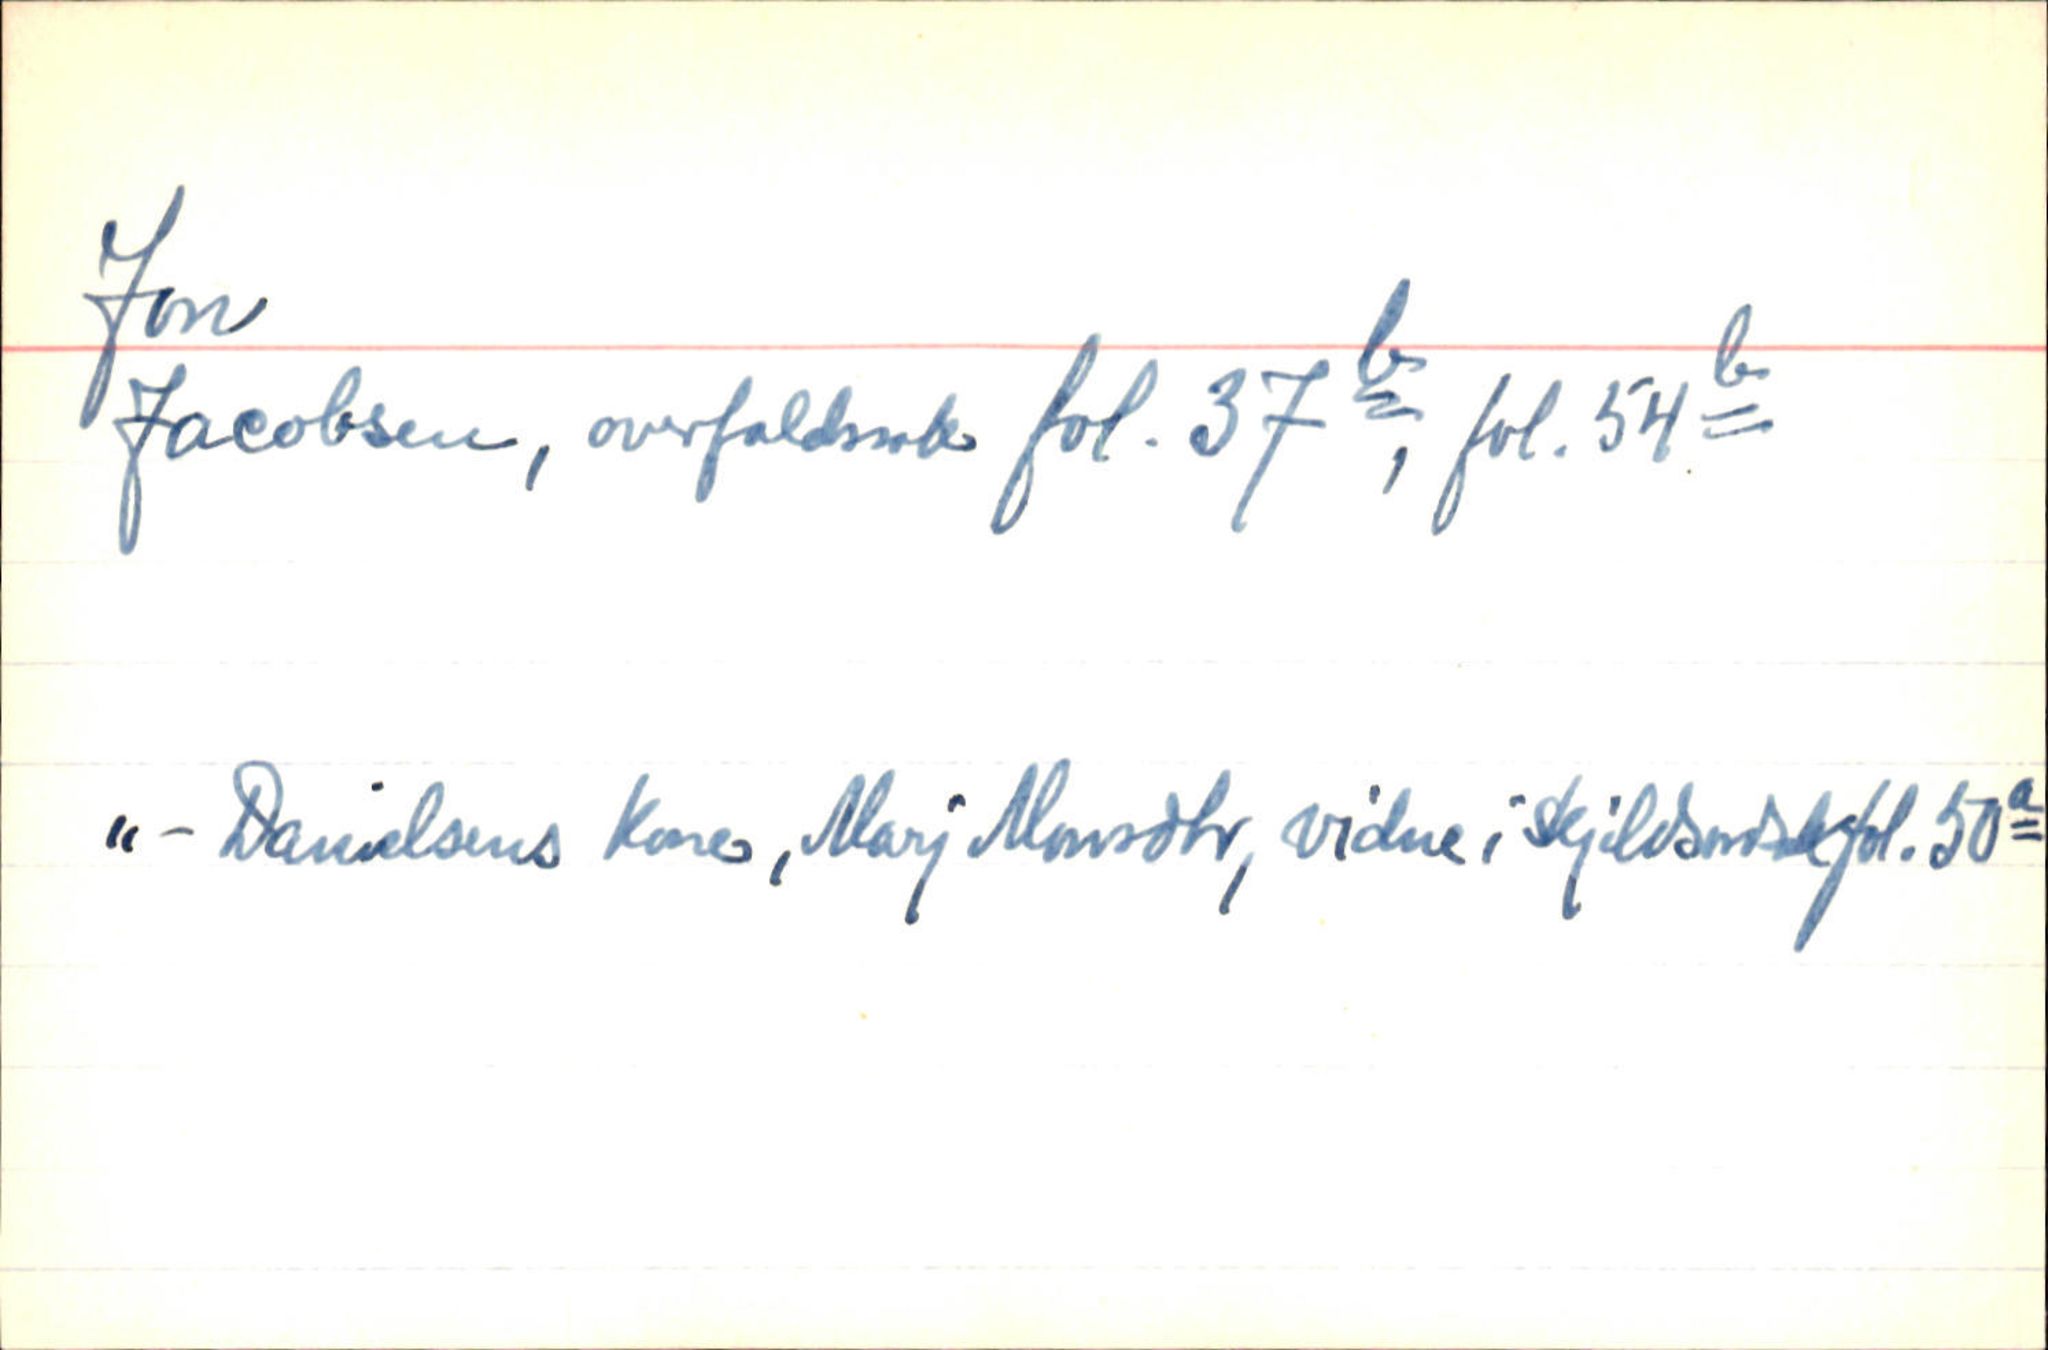 Jon
Jacobsen, overfaldssak fol. 37b, fol. 54b
"- Danielsens kone, Marj Monsdtr, vidne i skjeldsordsak fol. 50a